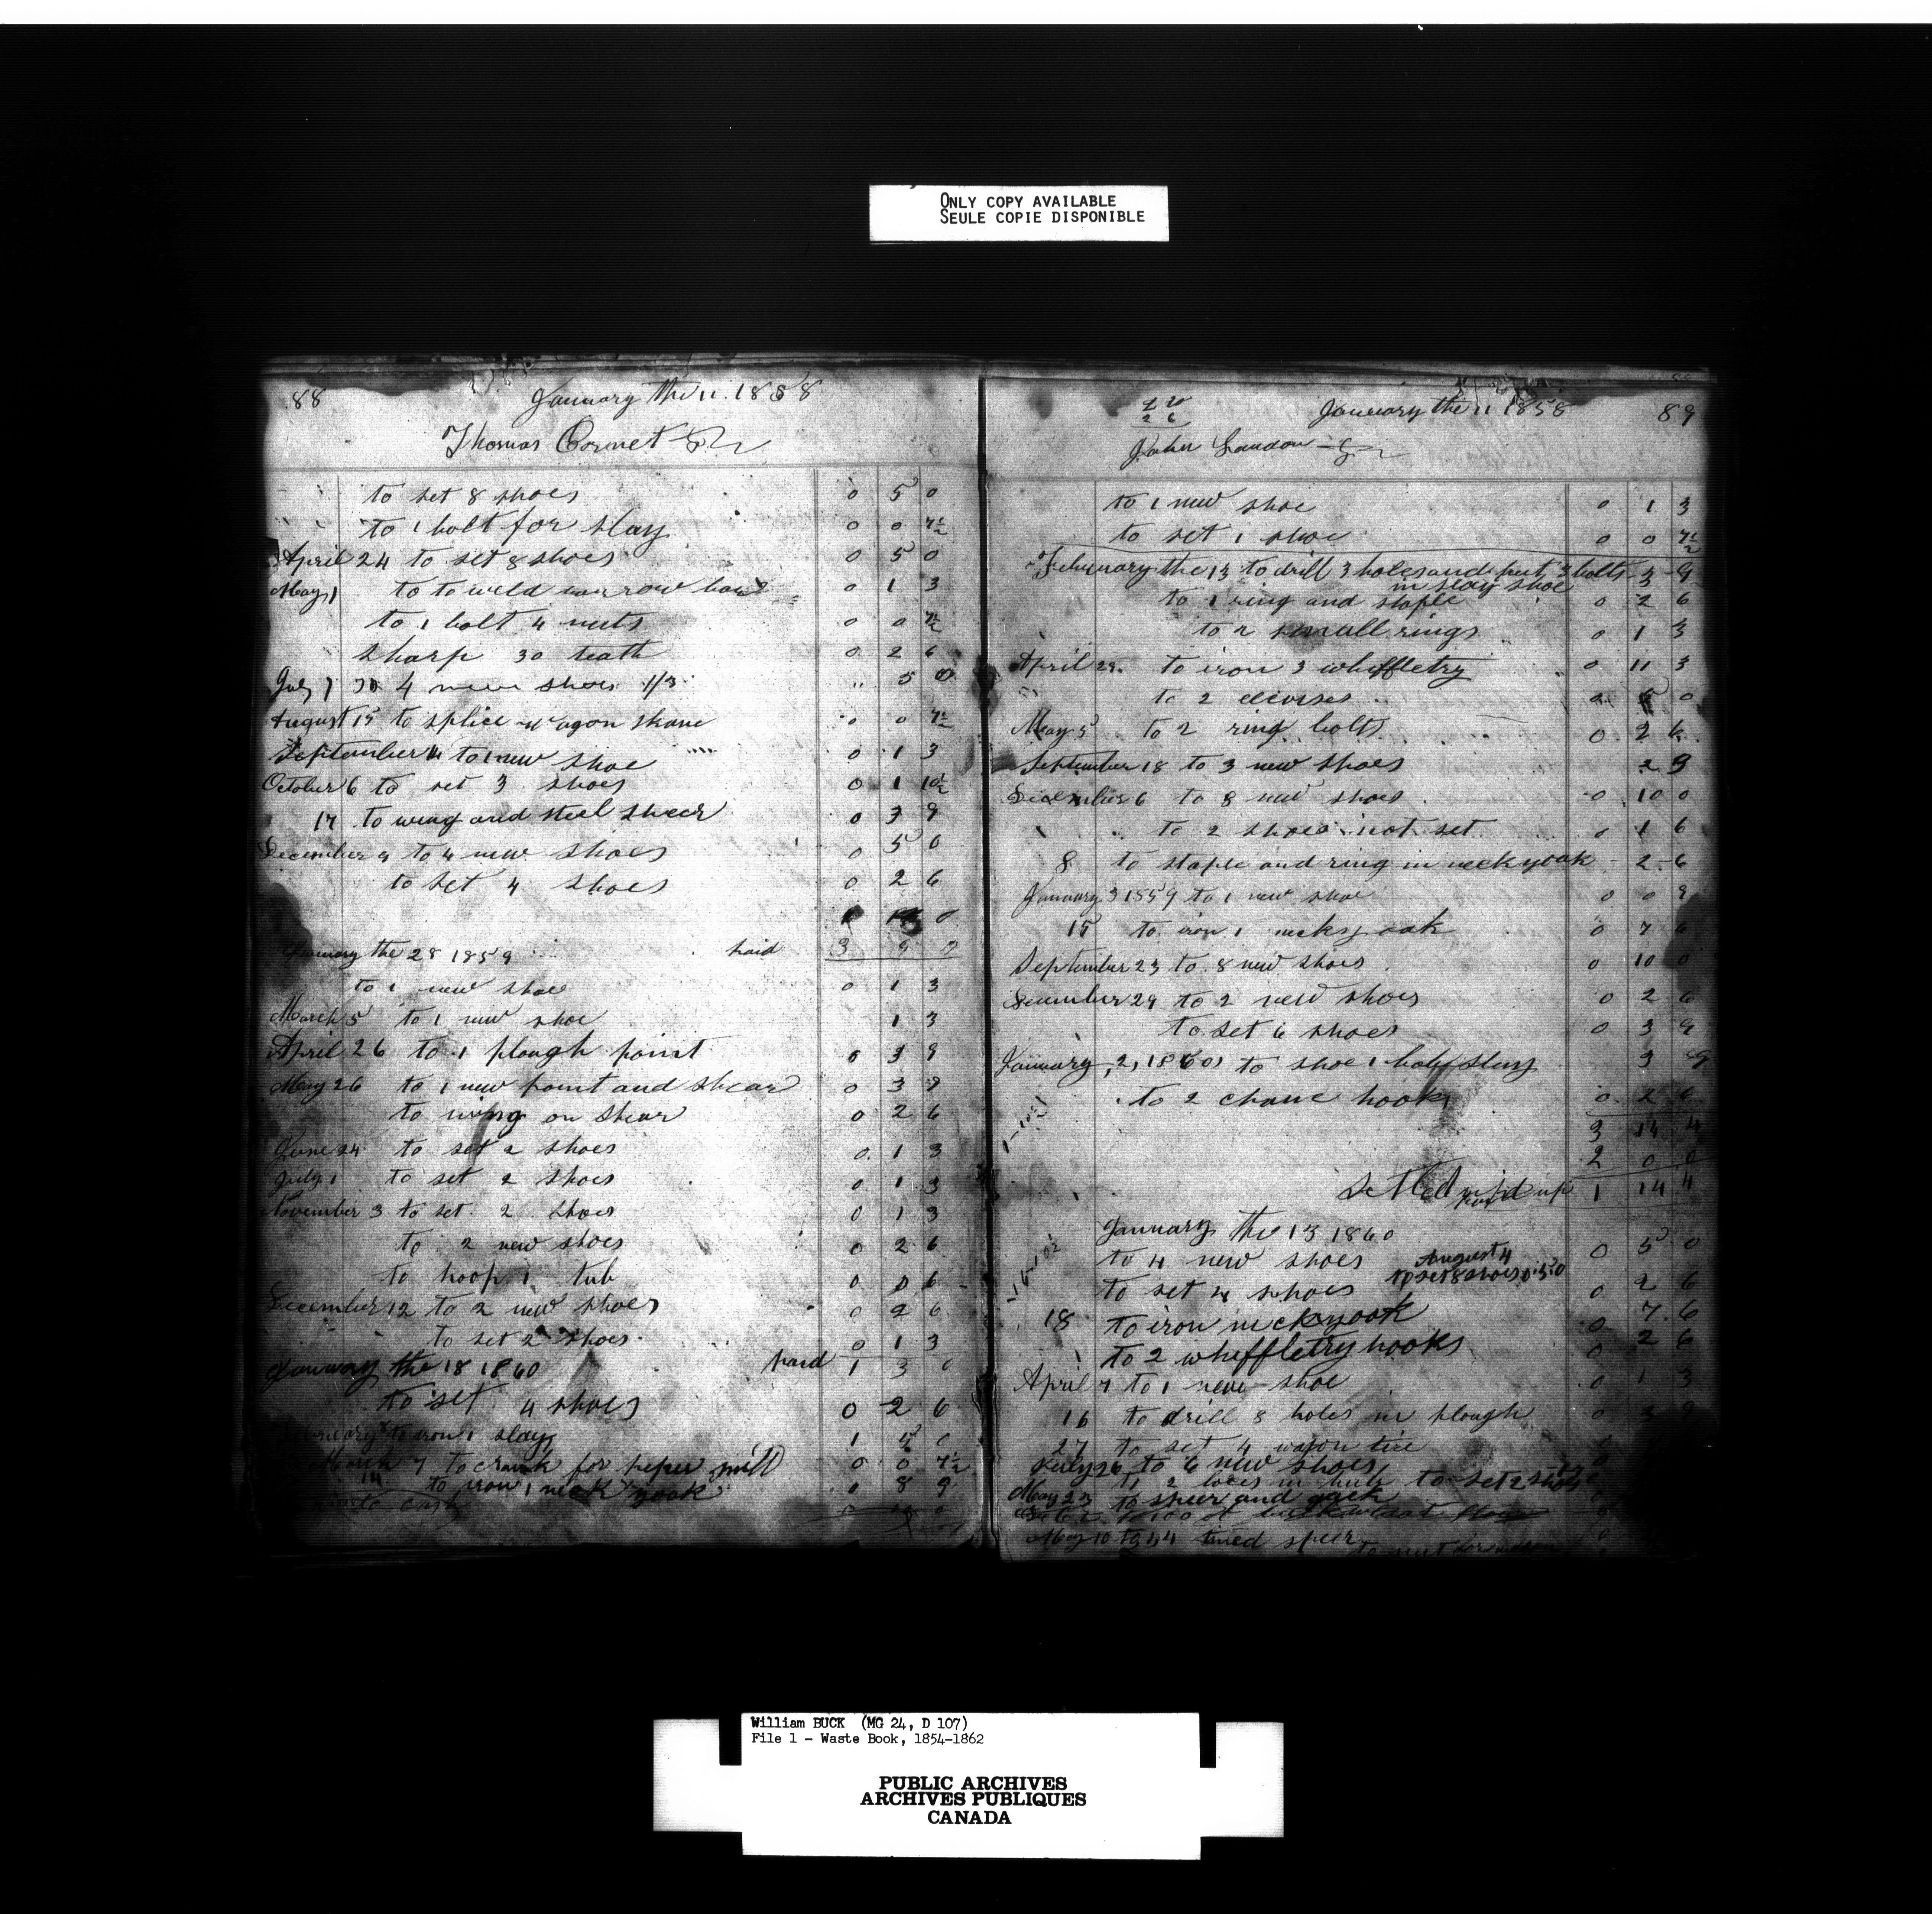 ONLY COPY AVAILABLE
SEULE COPIE DISPONIBLE
88 January the 11. 1858
Thomas Cornet
to set 8 shoes 0 5 0
to 1 bolt for slay 0 0 7½
April 24 to set 8 shoes 0 5 0
May 1 to to weld 0 1 3
to 1 bolt 4 nuts 0 0 7½
sharp 30 teath 0 2 6
July 1 to 4 new shoes 1/3 " 5 0
August 15 to splice wagon skane 0 0 7½
September to 1 new shoe 0 1 3
October 6 to set 3 shoes 0 1 10½
17 to wing and steel shear 0 3 9
December 4 to 4 new shoes 0 5 0
to set 4 shoes 0 2 6
January the 28 1859 paid 3
to 1 new shoe 0 1 3
March 5 to 1 new shoe 1 3
April 26 to 1 plough point 0 3 9
May 26 to 1 new point and shear 0 3 9
to wing on shear 0 2 6
June 24 to set 2 shoes 0 1 3
July 1 to set 2 shoes 0 1 3
November 3 to set 2 shoes 0 1 3
to 2 new shoes 0 2 6
to hoop 1 tub 0 0 6
December 12 to 2 new shoes 0 2 6
to set 2 shoes 0 1 3
January the 18 1860 paid 1 3 0
to set 4 shoes 0 2 6
to iron 1 slay 1
March 7 to crank for peper mill 0 0 7½
14 to iron 1 neck yook 0 8 9
cash
January the 11 1858 89
John Landon
to 1 new shoe 0 1 3
to set 1 shoe 0 0 7½
February the 13 to drill 3 holes and put 3 bolts 3 9
in slay shoe
to 1 ring and staple 0 2 6
to 2 small rings 0 1 3
April 29 to iron 3 whiffletry 0 11 3
to 2
May 5 to 2 ring bolts 0 2 6
September 18 to 3 new shoes 2 3
December 6 to 8 new shoes 0 10 0
to 2 shoes not set 0 1 6
8 to staple and ring in neck yoak 2 6
January 3 1859 to 1 new shoe 0 0 9
15 to iron 1 neck yoak 0 7 6
September 23 to 8 new shoes 0 10 0
December 29 to 2 new shoes 0 2 6
to set 6 shoes 0 3 9
January, 2, 1860 to shoe 1 half slay 3 9
to 2 chane hooks 0 2 6
3 14 4
2 0 0
Settled up 1 14 4
January the 13 1860
to 4 new shoes 0 5 0
August 4
to set 8 shoes 0 5 0
to set 4 shoes 0 2 6
18 to iron neckyook 0 7 6
to 2 wheffletry hooks 0 2 6
April 7 to 1 new shoe 0 1 3
16 to drill 8 holes in plough 0 3 9
27 to set 4 wagon tire
July 26 to 6 new shoes
to set 2 shoes
May 23 to speer and
May 10 to 44 tined speer
William BUCK (MG 24, D 107)
File 1 - Waste Book, 1854-1862
PUBLIC ARCHIVES
ARCHIVES PUBLIQUES
CANADA